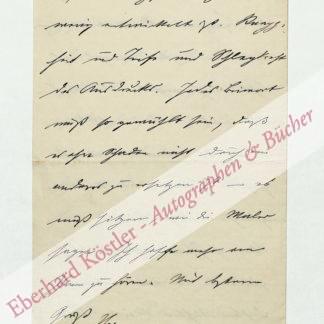 wenig entwickelt ist. Knapp-
heit und Tiefe und Schlagkraft
des Ausdrucks. Jedes Beiwort
muß so gewählt sein, daß
es ohne Schaden nicht durch ein
anderes zu ersetzen ist — es
muß sitzen, wie die Maler
sagen. Ich hoffe mehr von
Ihnen zu hören. Mit bestem
Gruß Ihr
Eberhard Köstler - Autographen & Bücher